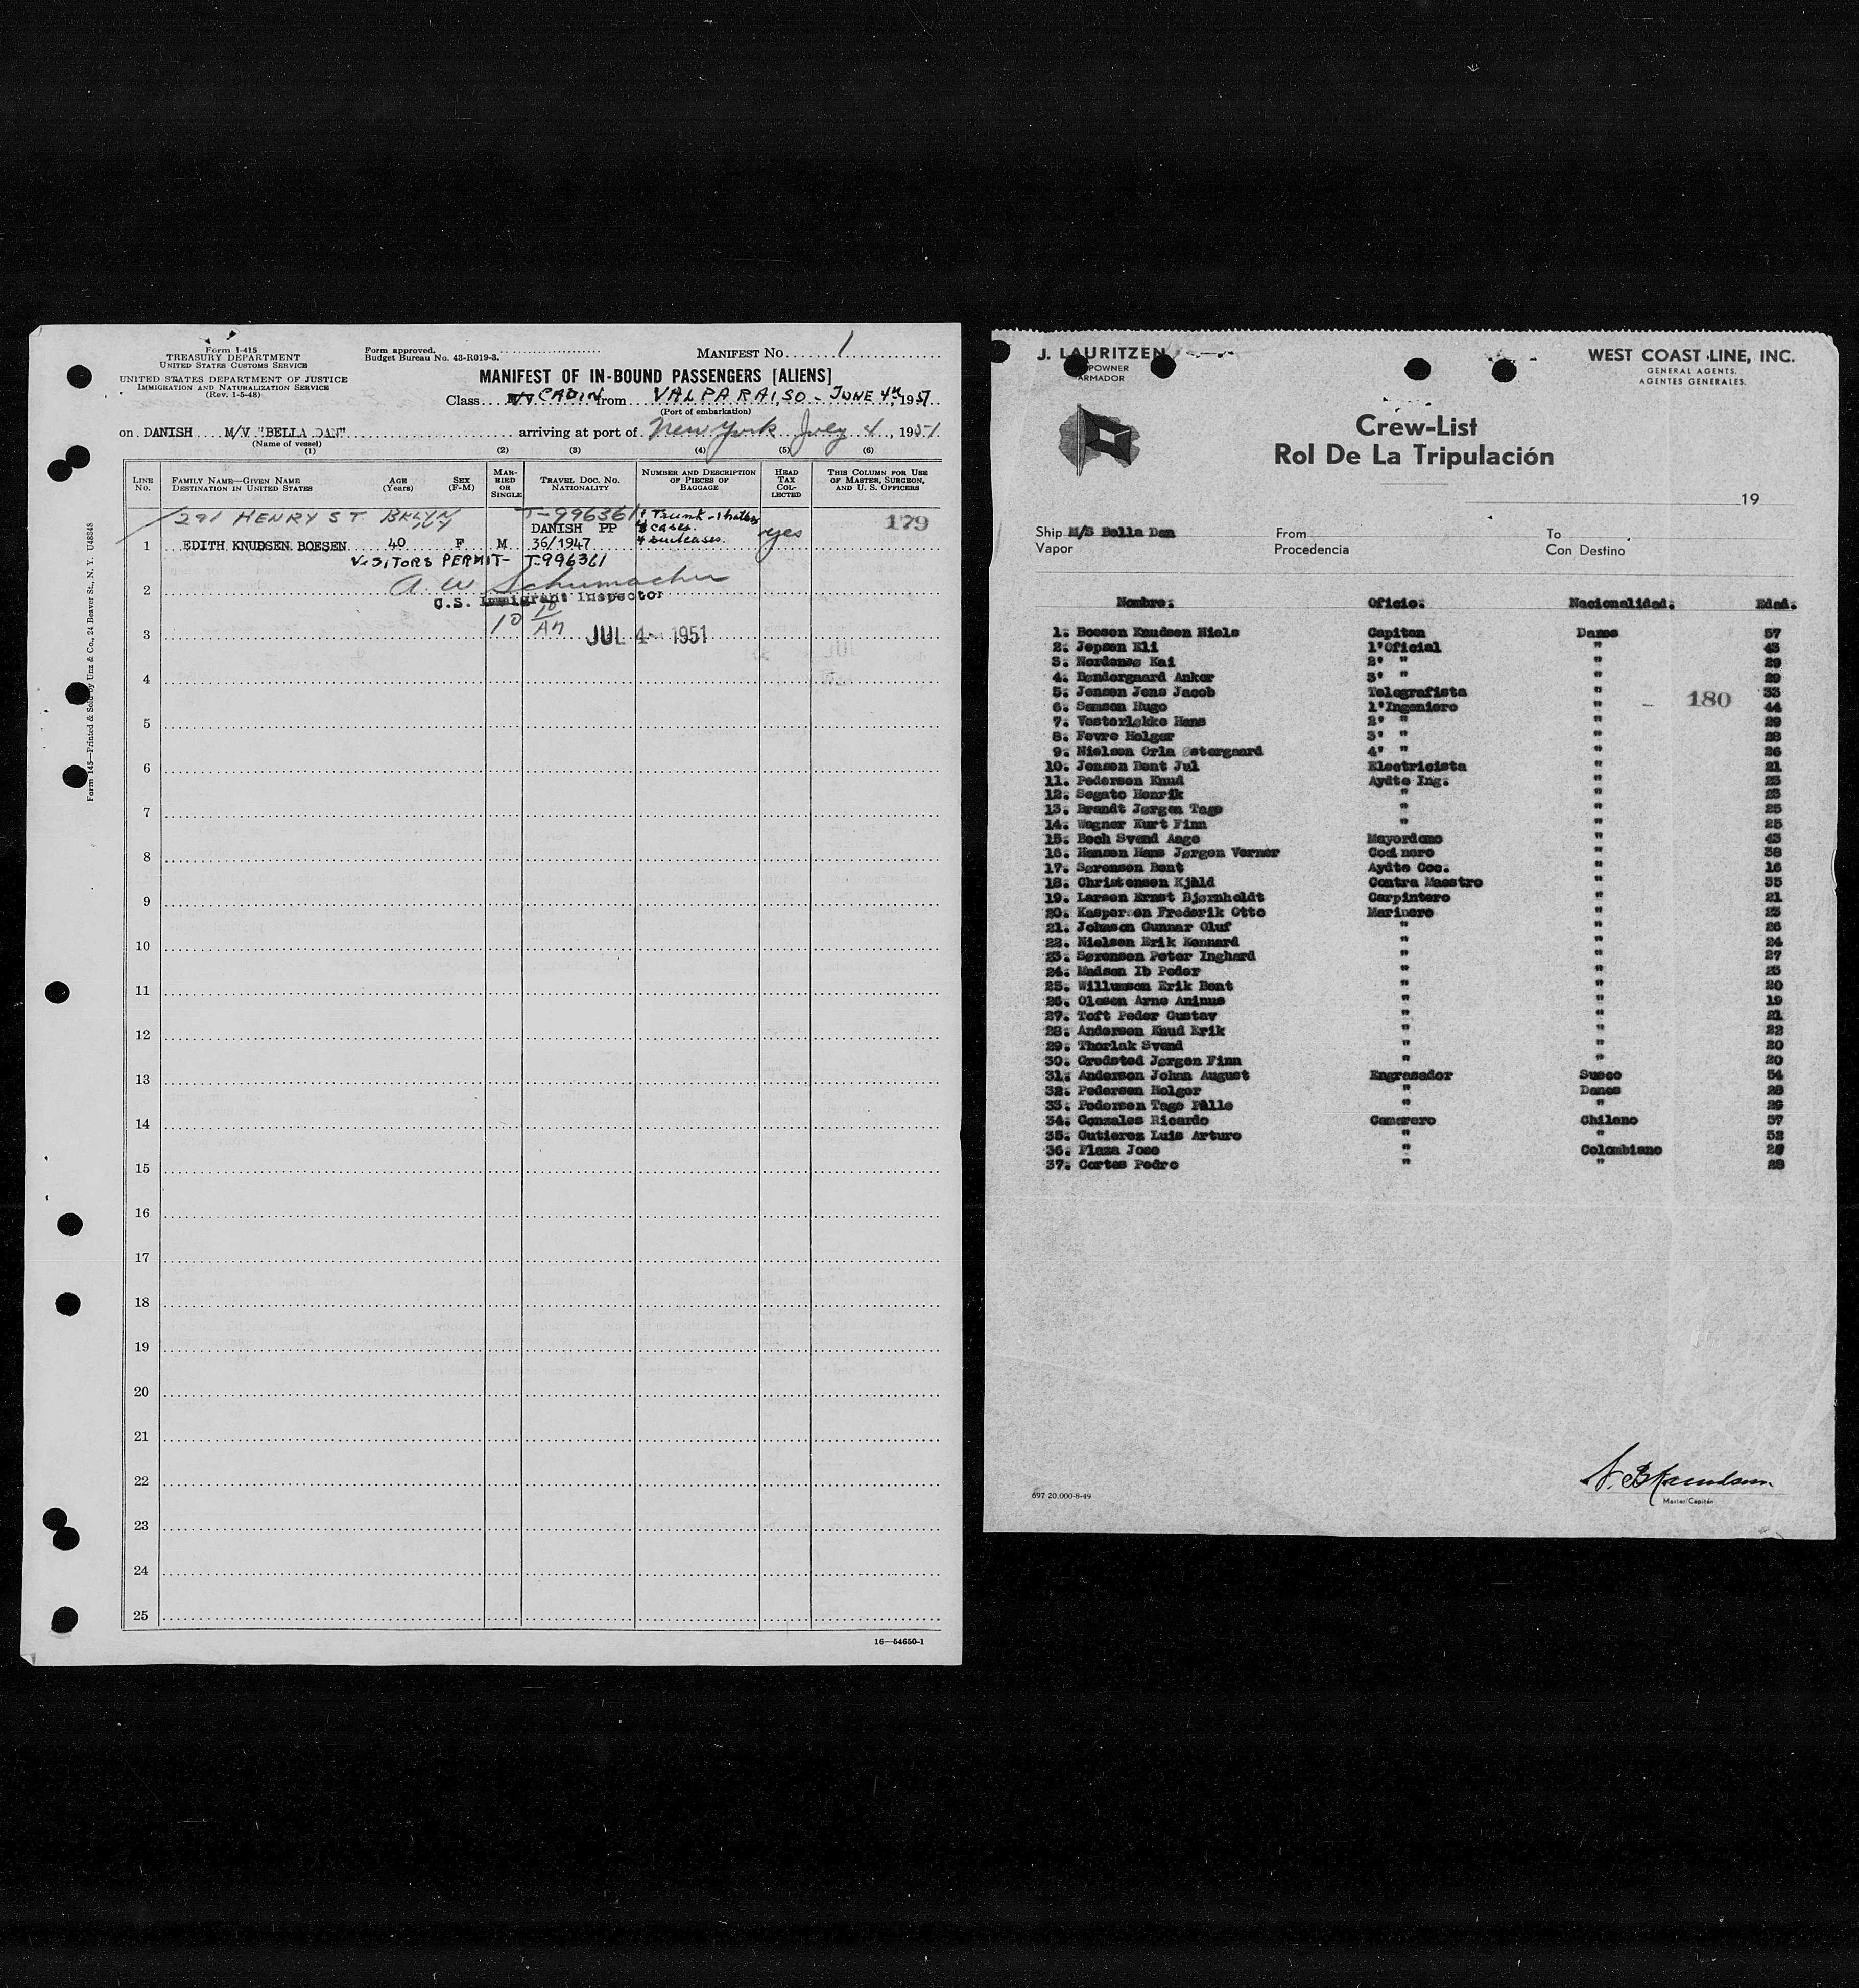 Form I-415
TREASURY DEPARTMENT
UNITED STATES CUSTOMS SERVICE
UNITED STATES DEPARTMENT OF JUSTICE
IMMIGRATION AND NATURALIZATION SERVICE
(Rev. 1-5-48)
Form approved.
Budget Bureau No. 43-R019-3.
MANIFEST No. 1
MANIFEST OF IN-BOUND PASSENGERS [ALIENS]
Class CABIN from VALPARAISO - JUNE 4th, 1951
(Port of embarkation)
on DANISH M/V "BELLA DAN" arriving at port of New York July 4, 1951
(Name of vessel)
(1) (2) (3) (4) (5) (6)
LINE No.
FAMILY NAME—GIVEN NAME
DESTINATION IN UNITED STATES
AGE (Years)
SEX (F-M)
MARRIED OR SINGLE
TRAVEL DOC. NO. NATIONALITY
NUMBER AND DESCRIPTION OF PIECES OF BAGGAGE
HEAD TAX COLLECTED
THIS COLUMN FOR USE OF MASTER, SURGEON, AND U. S. OFFICERS
291 HENRY ST BKLYN T-996361 1 Trunk -
DANISH PP cases. 179
1 EDITH KNUDSEN BOESEN 40 F M 36/1947 4 suitcases. yes
VISITORS PERMIT- T-996361
2 A. W. Schumacher
U.S. Immigrant Inspector
10 10 AM
3 JUL 4- 1951
4
5
6
7
8
9
10
11
12
13
14
15
16
17
18
19
20
21
22
23
24
25
16—54650-1
Form 145—Printed & Sold by Unz & Co., 24 Beaver St., N. Y. U48348
J. LAURITZEN
ARMADOR
WEST COAST LINE, INC.
GENERAL AGENTS.
AGENTES GENERALES.
Crew-List
Rol De La Tripulación
19
Ship M/S Bella Dan From To
Vapor Procedencia Con Destino
Nombre: Oficio: Nacionalidad: Edad.
1. Boesen Knudsen Niels Capitan Danes 57
2. Jepsen Eli 1'Oficial " 43
3. Nordenøs Kai 2' " " 29
4. Bøndergaard Anker 3' " " 29
5. Jensen Jens Jacob Telegrafista " 33
180
6. Samson Hugo 1'Ingeniero " 44
7. Vesterløkke Hans 2' " " 29
8. Fevre Holger 3' " " 28
9. Nielsen Orla Østergaard 4' " " 26
10. Jensen Bent Jul Electricista " 21
11. Pedersen Knud Aydte Ing. " 23
12. Segato Henrik " " 23
13. Brandt Jørgen Tage " " 25
14. Wagner Kurt Finn " " 25
15. Bech Svend Aage Mayordomo " 43
16. Hansen Hans Jørgen Verner Cocinero " 38
17. Sørensen Bent Aydte Coc. " 16
18. Christensen Kjeld Contra Maestro " 35
19. Larsen Ernst Bjørnholdt Carpintero " 21
20. Kaspersen Frederik Otto Marinero " 23
21. Johnson Gunnar Oluf " " 26
22. Nielsen Erik Kennard " " 24
23. Sørensen Peter Inghard " " 27
24. Madsen Ib Peder " " 23
25. Willumsen Erik Bent " " 20
26. Olesen Arne Aninus " " 19
27. Toft Peder Gustav " " 21
28. Andersen Knud Erik " " 22
29. Thorlak Svend " " 20
30. Gredsted Jørgen Finn " " 20
31. Anderson Johan August Engrasador Sueco 54
32. Pedersen Holger " Danes 28
33. Pedersen Tage Palle " " 29
34. Gonzales Ricardo Camarero Chileno 57
35. Gutierez Luis Arturo " " 52
36. Plaza Jose " Colombiano 28
37. Cortes Pedro " " 28
N. B Knudsen
Master/Capitán
697 20.000-8-49